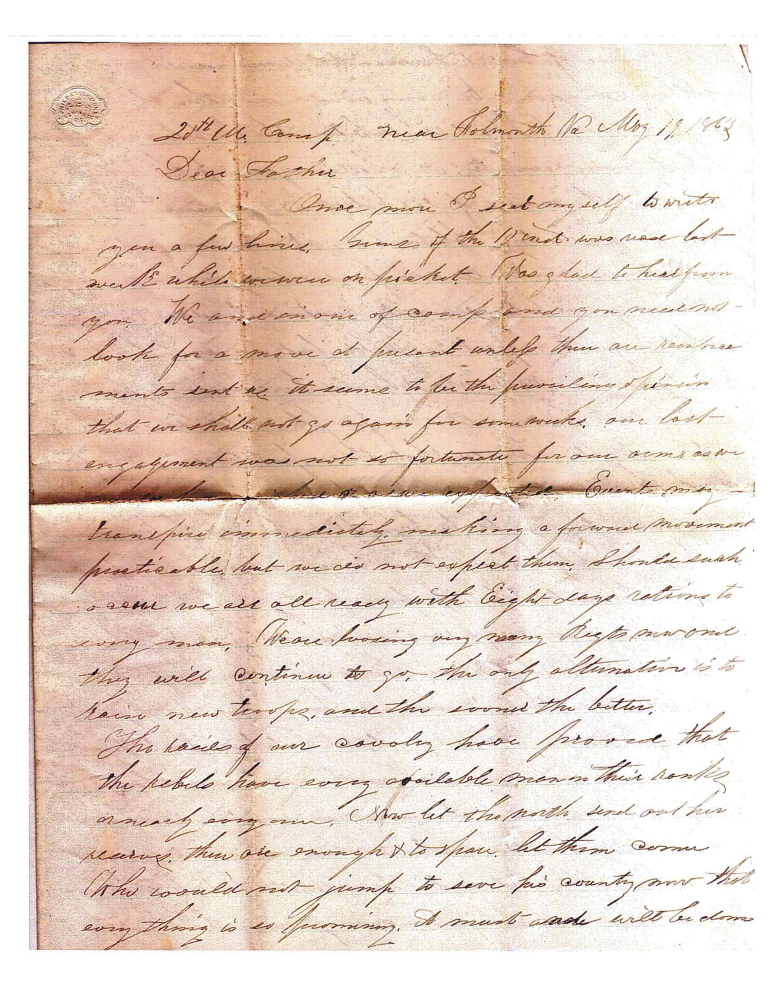 20th Me Camp near Folmonth Va May 19 1863
Dear Father
Once more I seat myself to write
you a few lines. yours of the 12 inst was recd last
week while we were on picket. Was glad to hear from
you. We are in our of camp and you need not
look for a move at present unless there are reinforce
ments sent as it seems to be the prevailing opinion
that we shall not go again for some weeks, our last
engagement was not so fortunate for our arms as we
expected. Events may
transpire immediately, making a forward movement
practicable, but we do not expect them, Should such
occur we are all ready with Eight days rations to
every man, We are loosing very many Regts now and
they will continue to go, the only alternative is to
raise new troops, and the sooner the better.
The raids of our cavalry have proved that
the rebels have every available man in their ranks
or nearly every one, Now let the north send out her
reserves, there are enough & to spare, let them come
Who would not jump to save his country now that
every thing is so promising, it must and will be done